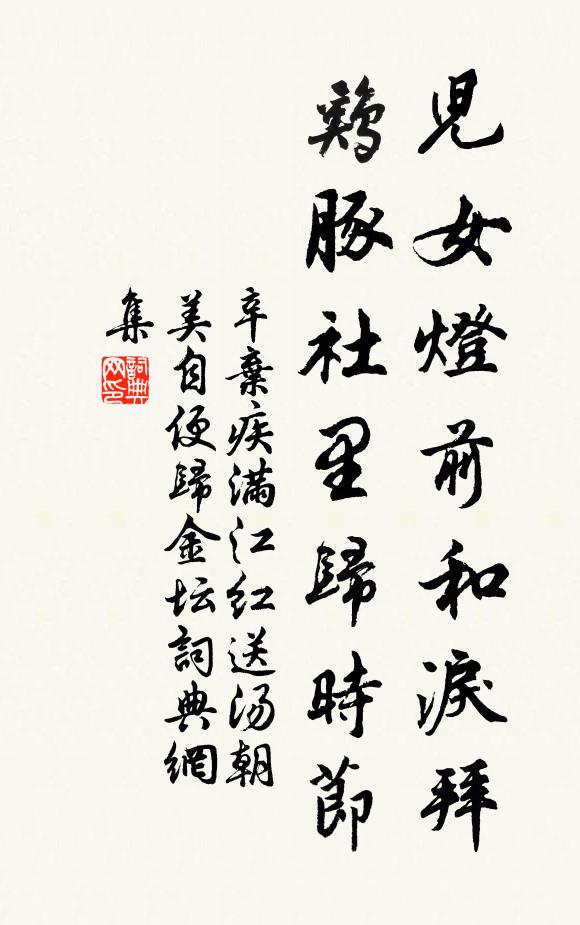 兒女燈前和淚拜
鷄豚社里歸時節
辛棄疾滿江红送汤朝
美自便歸金坛詞典網
集
詞典
网印